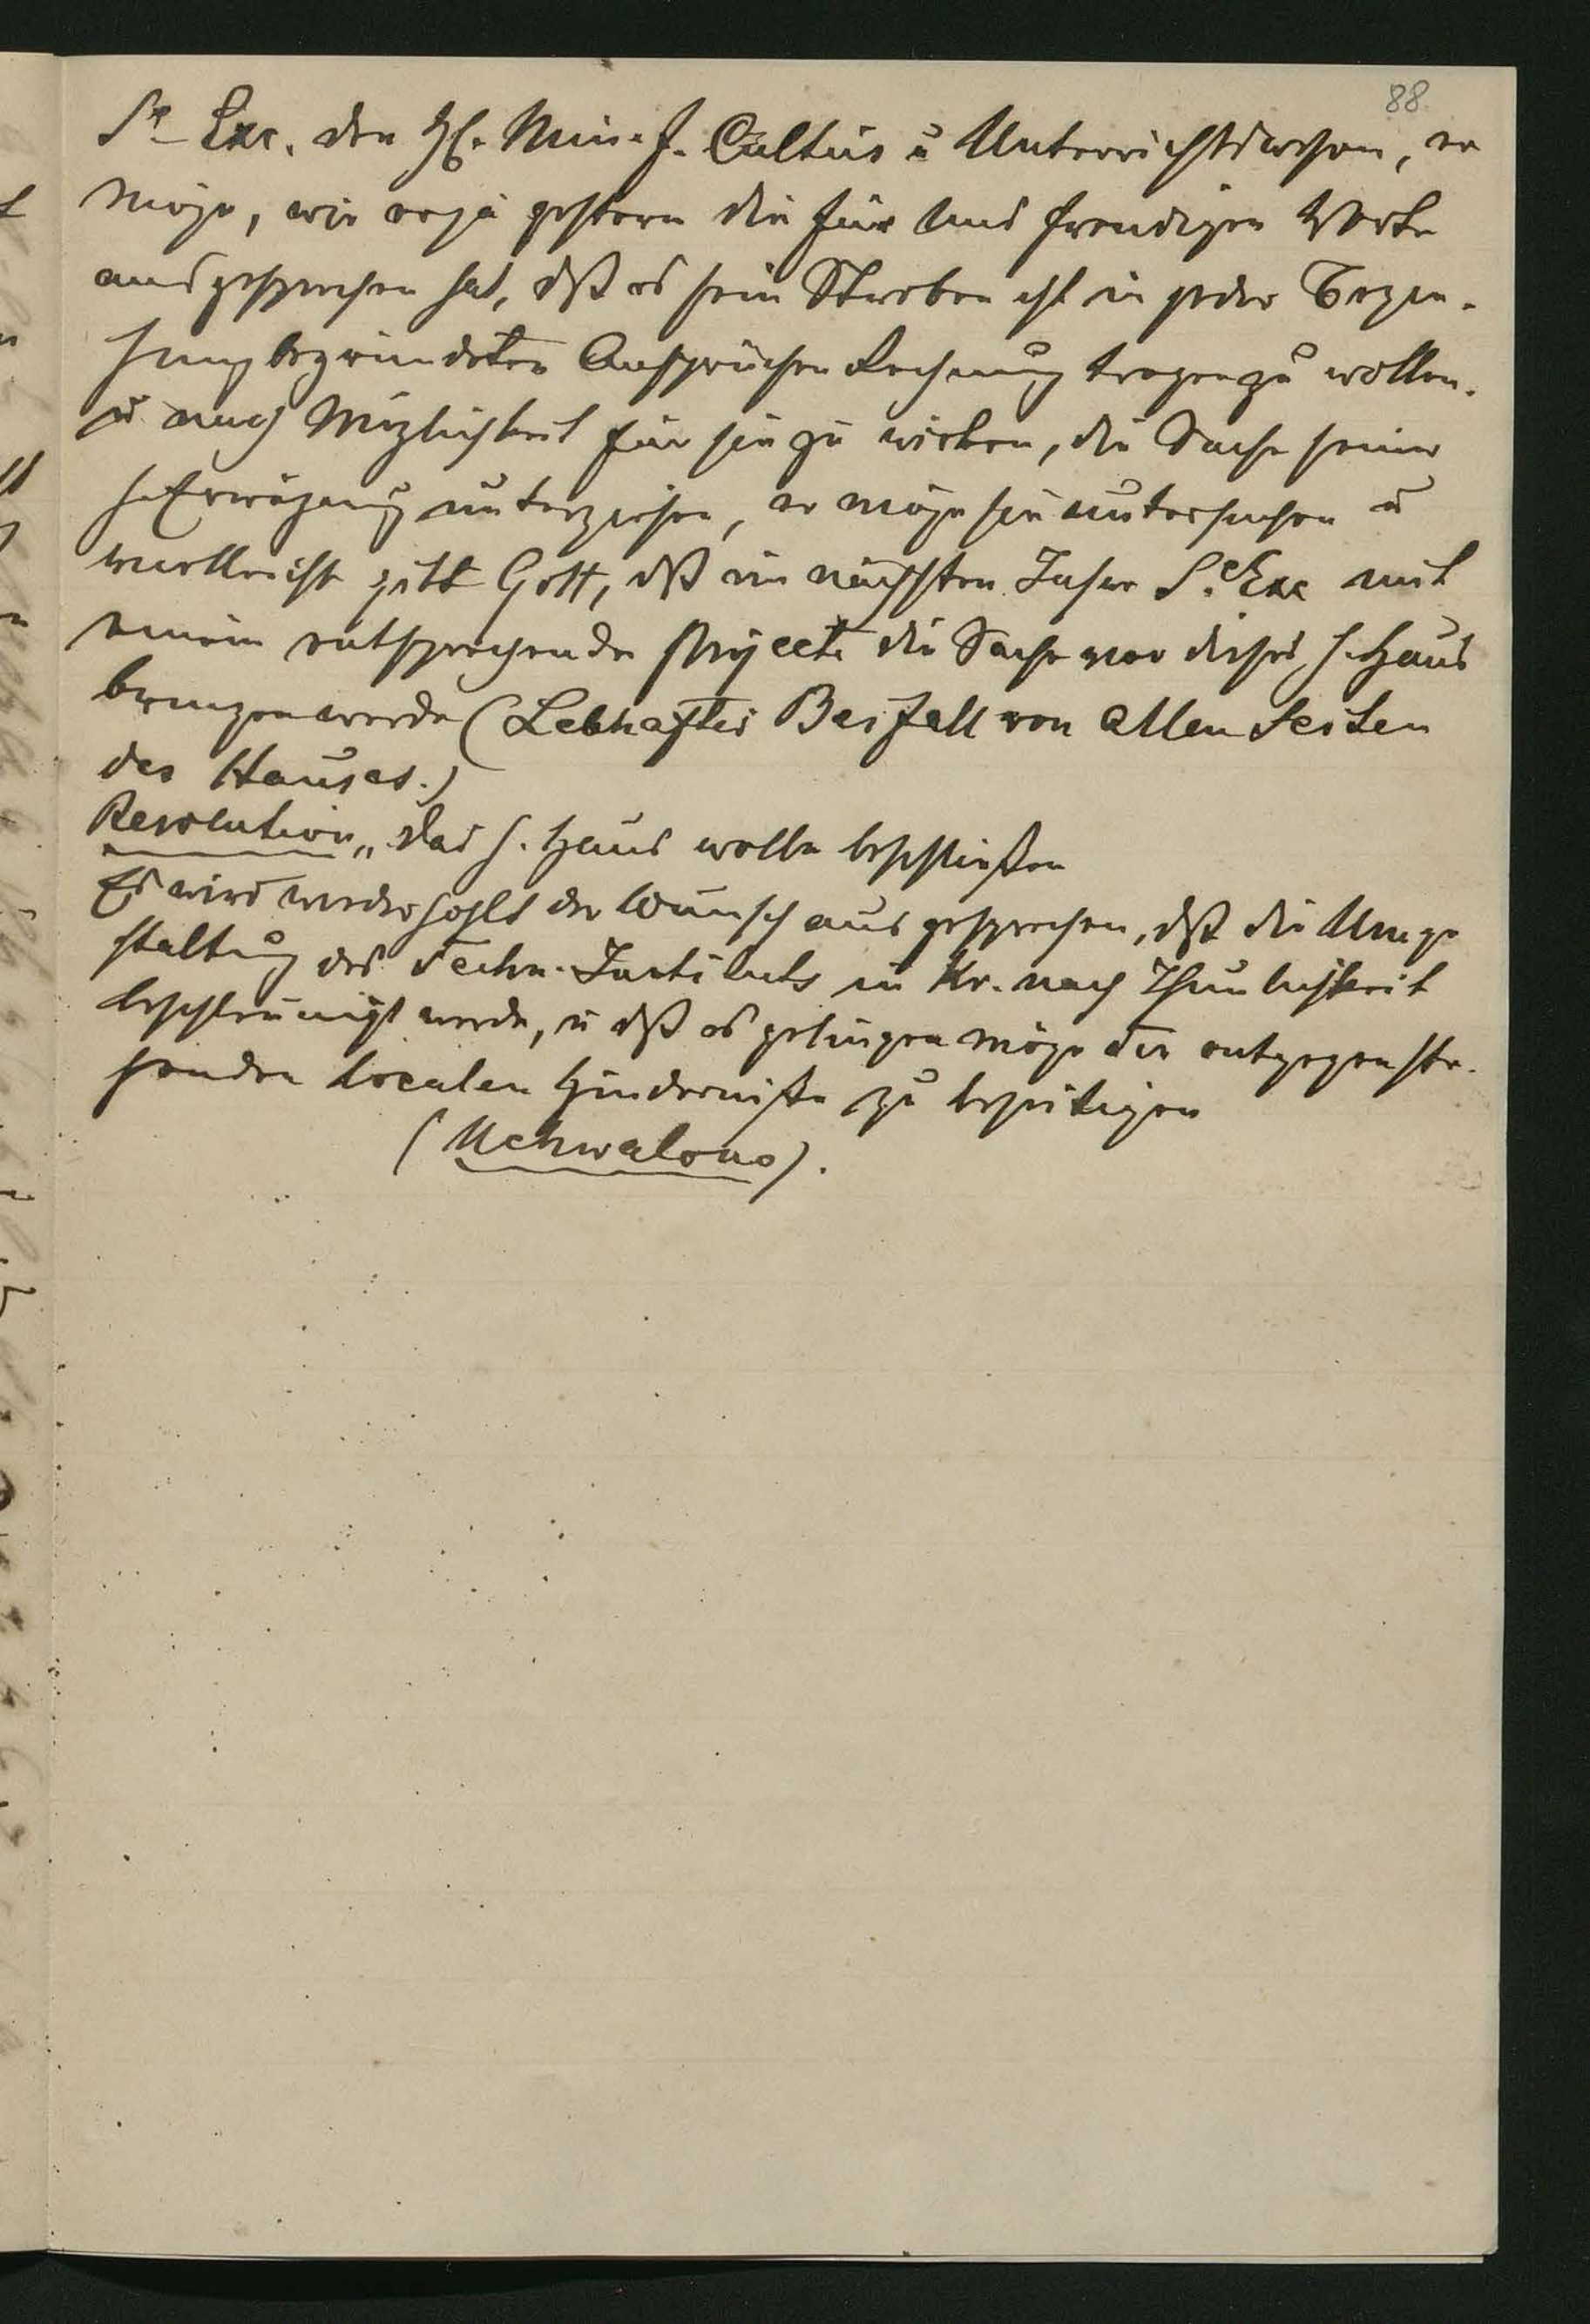 88.
Se Exc. den H. Min. f. Cultus u Unterrichtswesen, er
möge, wie er ja gestern die für uns freudigen Worte
ausgesprochen hat, dß es sein Streben ist in jeder Bezie-
hung begründeten Ansprüchen Rechnung tragen zu wollen.
u nach Möglichkeit für sie zu wirken, die Sache seiner
h. Erwägung unterziehen, er möge sie untersuchen u
vielleicht gibt Gott, dß im nächsten Jahre Se Exc mit
einem entsprechenden Projecte die Sache vor dieses h. Haus
bringen werde (Lebhafter Beifall von allen Seiten
des Hauses.)
Resolution „Das h. Haus wolle beschließen
Es wird wiederholt der Wunsch ausgesprochen, dß die Umge
staltung des Techn. Instituts in Kr. nach Thunlichkeit
beschleunigt werde, u dß es gelingen möge die entgegenste-
henden localen Hinderniße zu beseitigen
(Uchwalono).